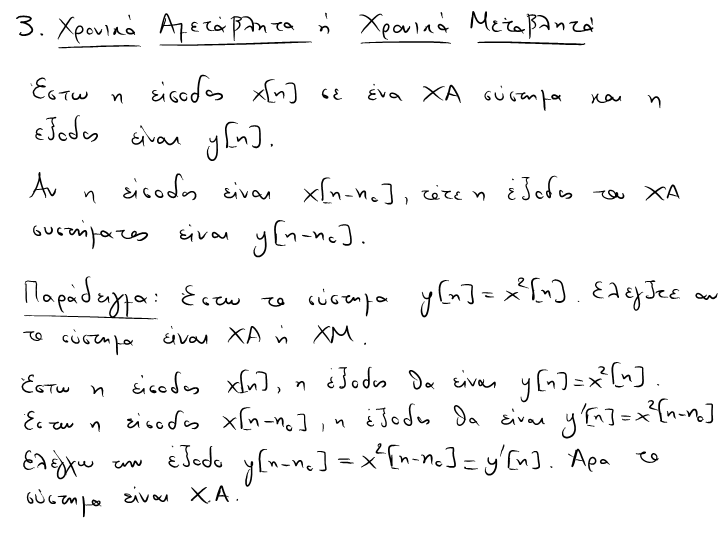 3. Χρονικά Αμετάβλητα ή Χρονικά Μεταβλητά
Έστω η είσοδος x[n] σε ένα ΧΑ σύστημα και η
έξοδος είναι y[n].
Αν η είσοδος είναι x[n-n₀], τότε η έξοδος του ΧΑ
συστήματος είναι y[n-n₀].
Παράδειγμα: Έστω το σύστημα y[n] = x²[n]. Ελέγξτε αν
το σύστημα είναι ΧΑ ή ΧΜ.
Έστω η είσοδος x[n], η έξοδος θα είναι y[n]=x²[n].
Έστω η είσοδος x[n-n₀], η έξοδος θα είναι y'[n]=x²[n-n₀]
Ελέγχω την έξοδο y[n-n₀] = x²[n-n₀] = y'[n]. Άρα το
σύστημα είναι ΧΑ.